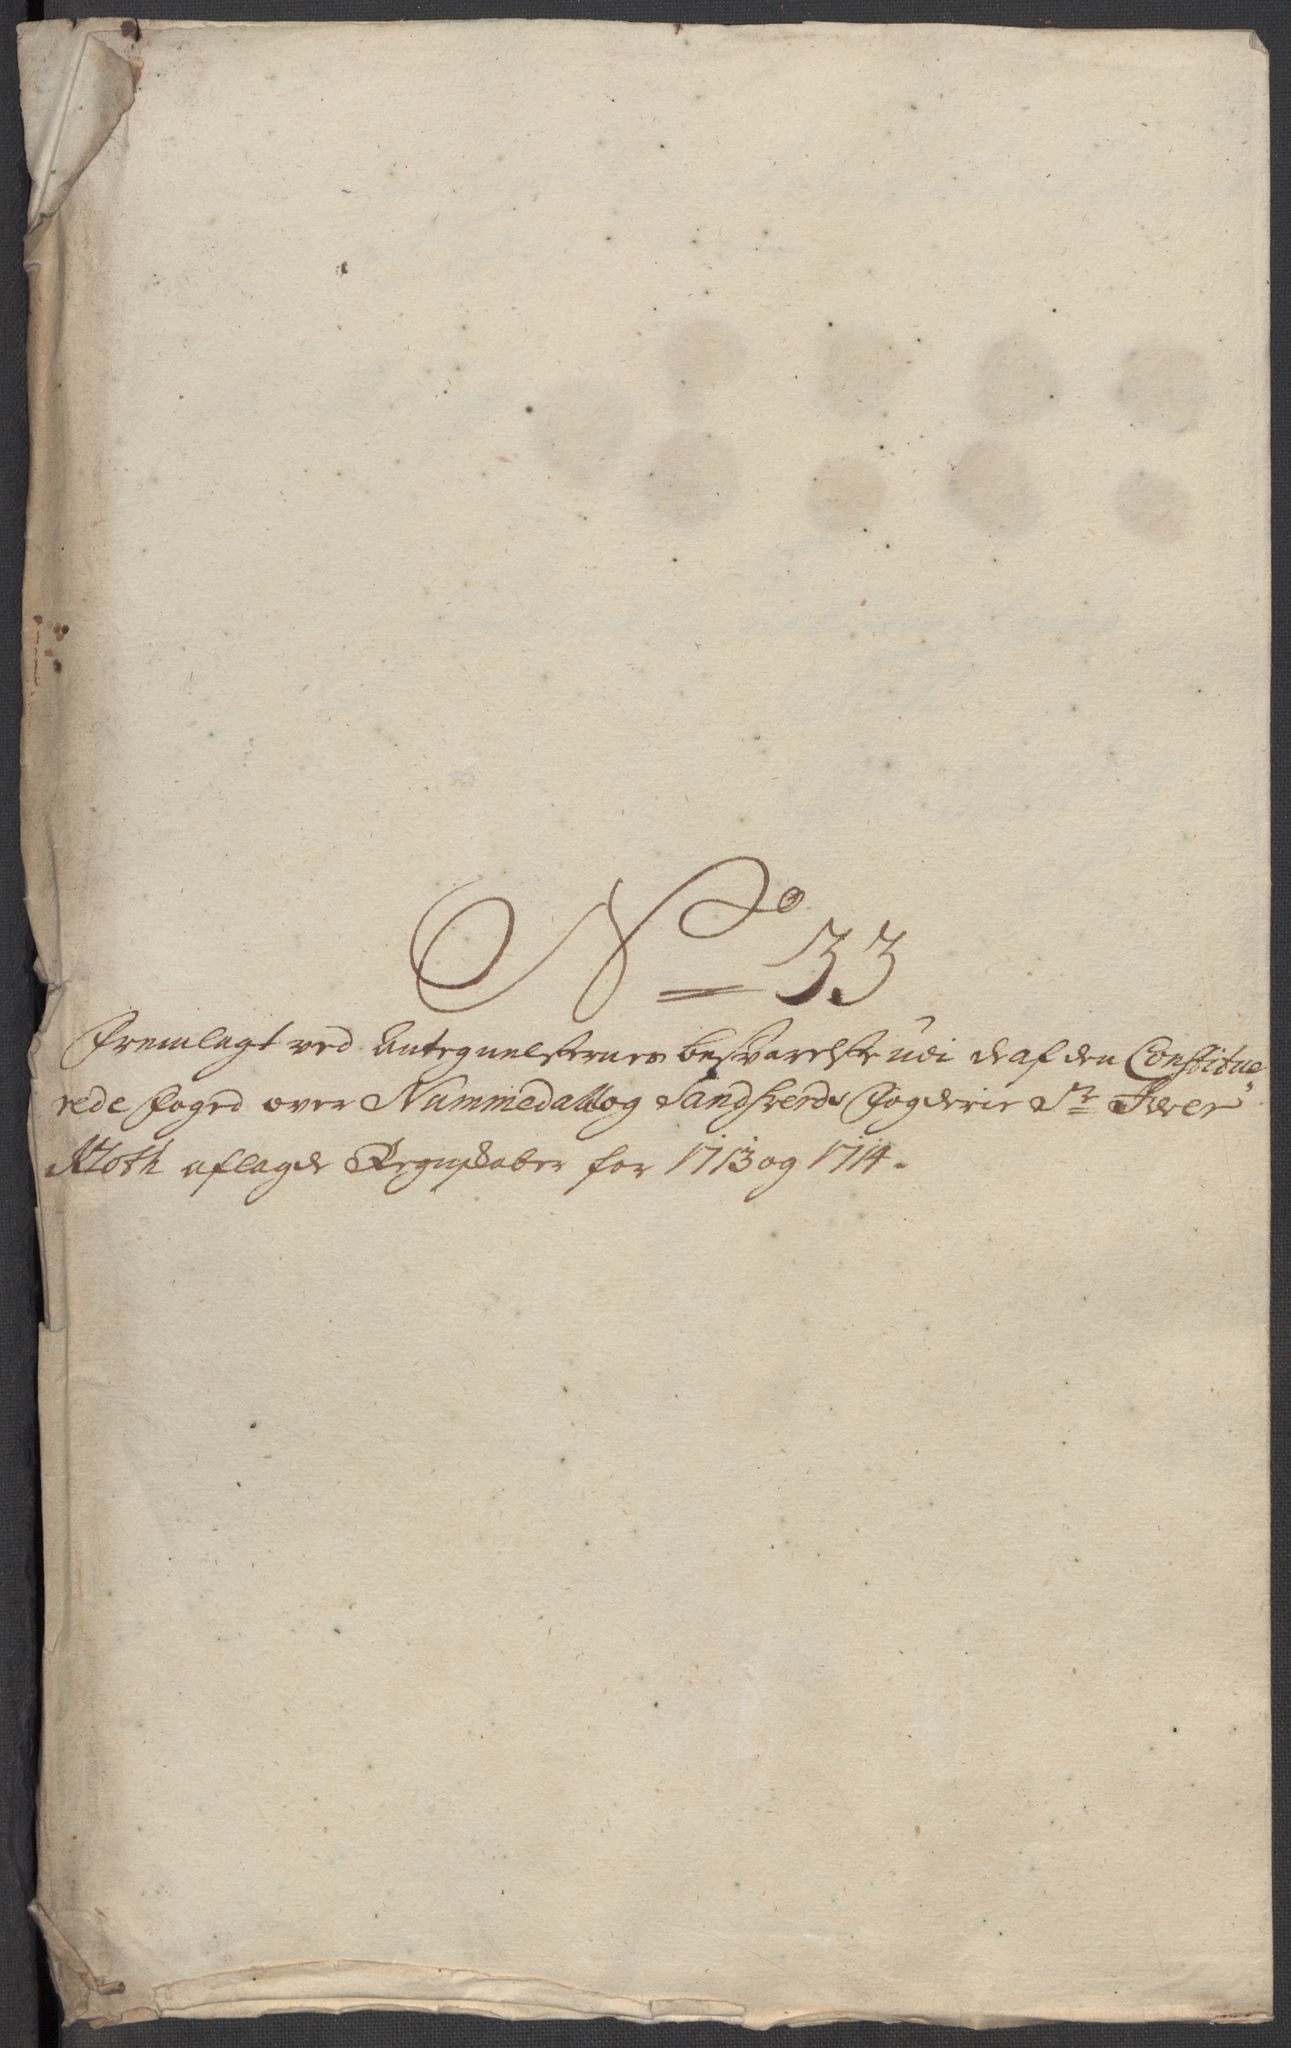 No 33
Fremlagt ved Antegnelsernes besvarelse udi de af den Constitue
rede foged over Nummedall og Sandsverds fogderie Sr Iver
Moth aflagde Regnskaber for 1713 og 1714.